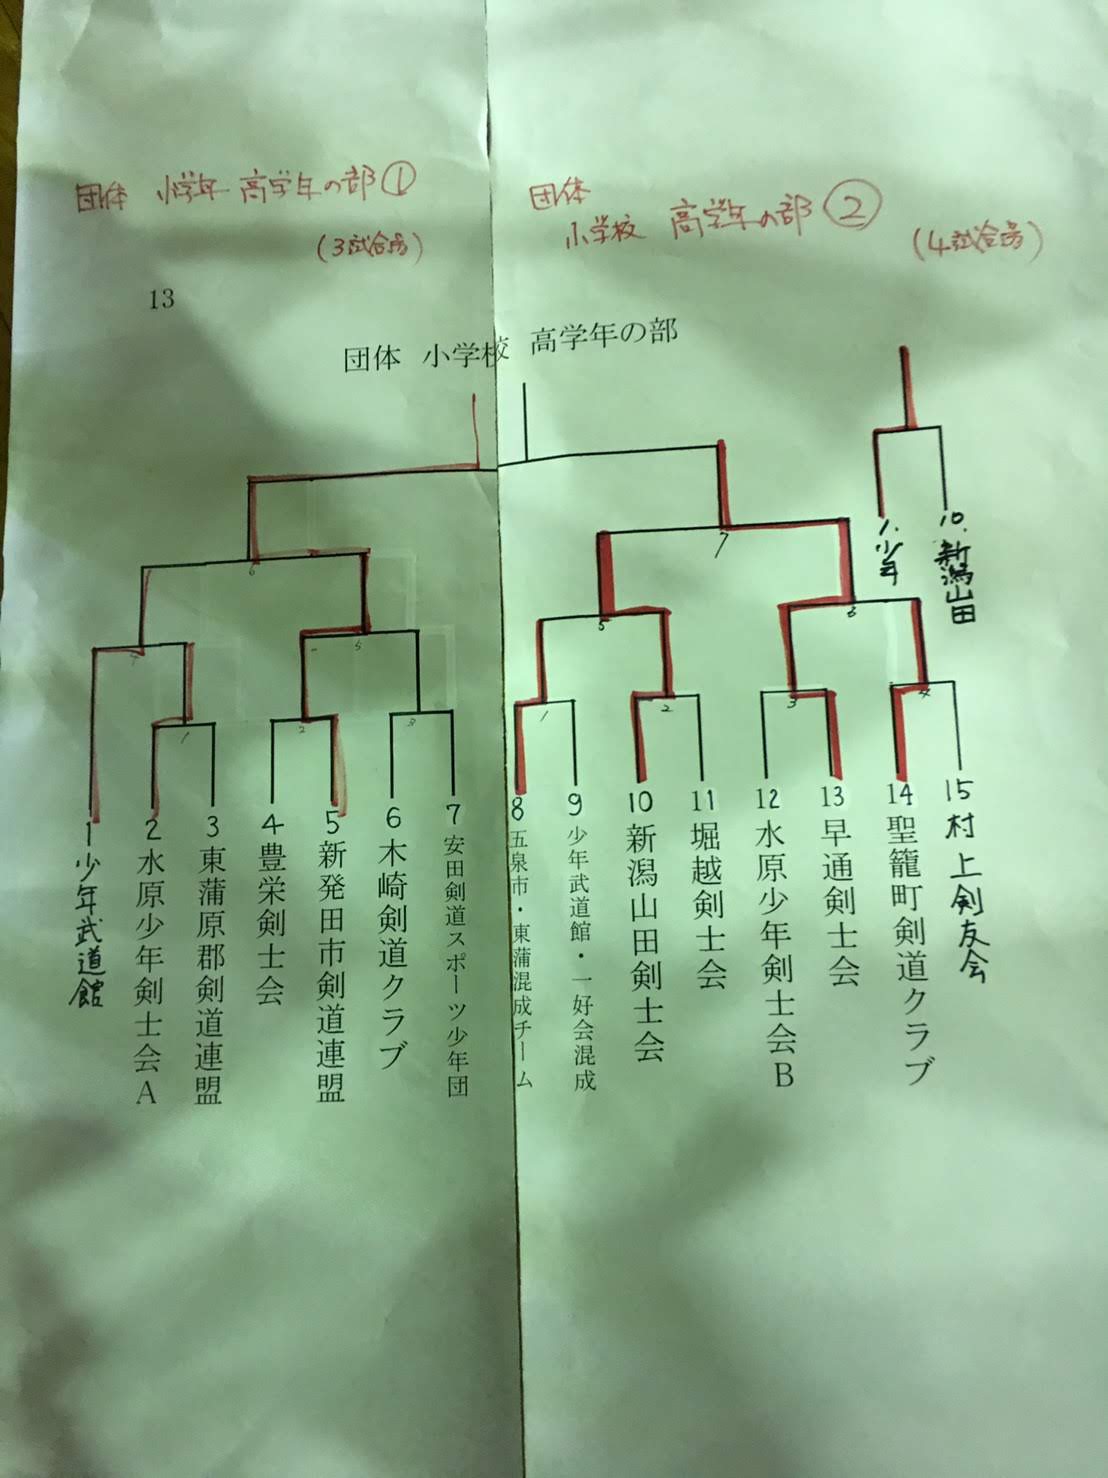 団体 小学年 高学年の部①
(3試合場)
団体
小学校 高学年の部②
(4試合場)
13
団体 小学校 高学年の部
1.少年
10.新潟山田
7
6
5
6
4
5
1
2
3
4
1
2
3
1 少年武道館
2 水原少年剣士会A
3 東蒲原郡剣道連盟
4 豊栄剣士会
5 新発田市剣道連盟
6 木崎剣道クラブ
7 安田剣道スポーツ少年団
8 五泉市・東蒲混成チーム
9 少年武道館・一好会混成
10 新潟山田剣士会
11 堀越剣士会
12 水原少年剣士会B
13 早通剣士会
14 聖籠町剣道クラブ
15 村上剣友会